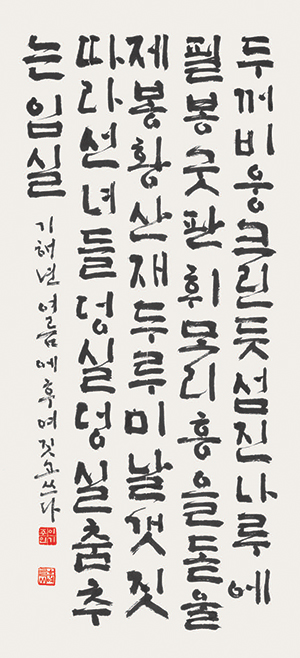 두꺼비웅크린듯섬진나루에
필봉굿판휘모리흥을돋울
제봉황산재두루미날갯짓
따라선녀들덩실덩실춤추
는임실
기해년 여름에 후여 짓고 쓰다